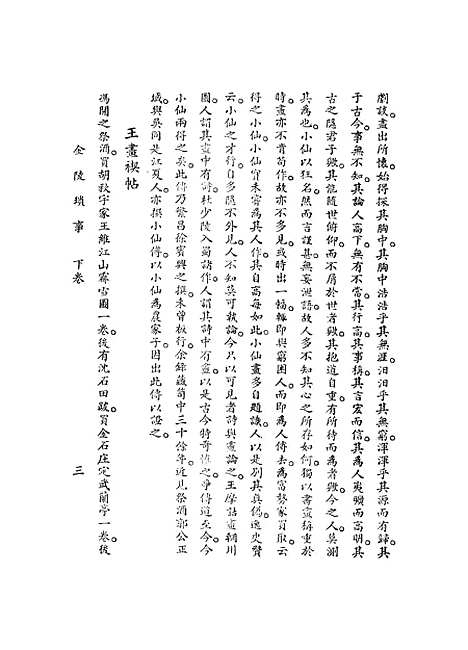 劇談畫出所懷始得探其胸中其胸中浩浩乎其無涯汨汨乎其無窮渾渾乎其源而有歸其
于古今事無不知其論人高下無有不當其行高其事稱其言宏而信其為人夷曠而高明其
古之隱君子歟其能隨世俯仰而不屑於世者歟其抱道自重有所待而為者歟今之人莫測
其為也小仙以狂名然而言謹甚無妄泄語故人多不知其心之所存如何獨以書畫稱重於
時畫亦不肯苟作故亦不多見或時出一幅輒即與窮困人而即為人傳去為富勢家買取云
得之小仙小仙實未嘗為其人作其自高每如此小仙畫多自題識人以是別其真偽逸史贊
云小仙之才行自多隨不外見人不知莫可執論今只以可見者詩與畫論之王摩詰畫輞川
圖人謂其畫中有詩杜少陵入蜀諸作人謂其詩中有畫以是古今特奇之爭傳道至今今
小仙兩得之矣此傳乃繁昌徐霖與之撰未曾板行余錄藏笥中三十餘年近見祭酒郭公正
域與吳同是江夏人亦撰小仙傳以小仙為農家子因出此傳以證之
王畫禊帖
馮開之祭酒買胡秋宇家王維江山霽雪圖一卷後有沈石田跋買金石庄定武蘭亭一卷後
金陵瑣事 下卷 三